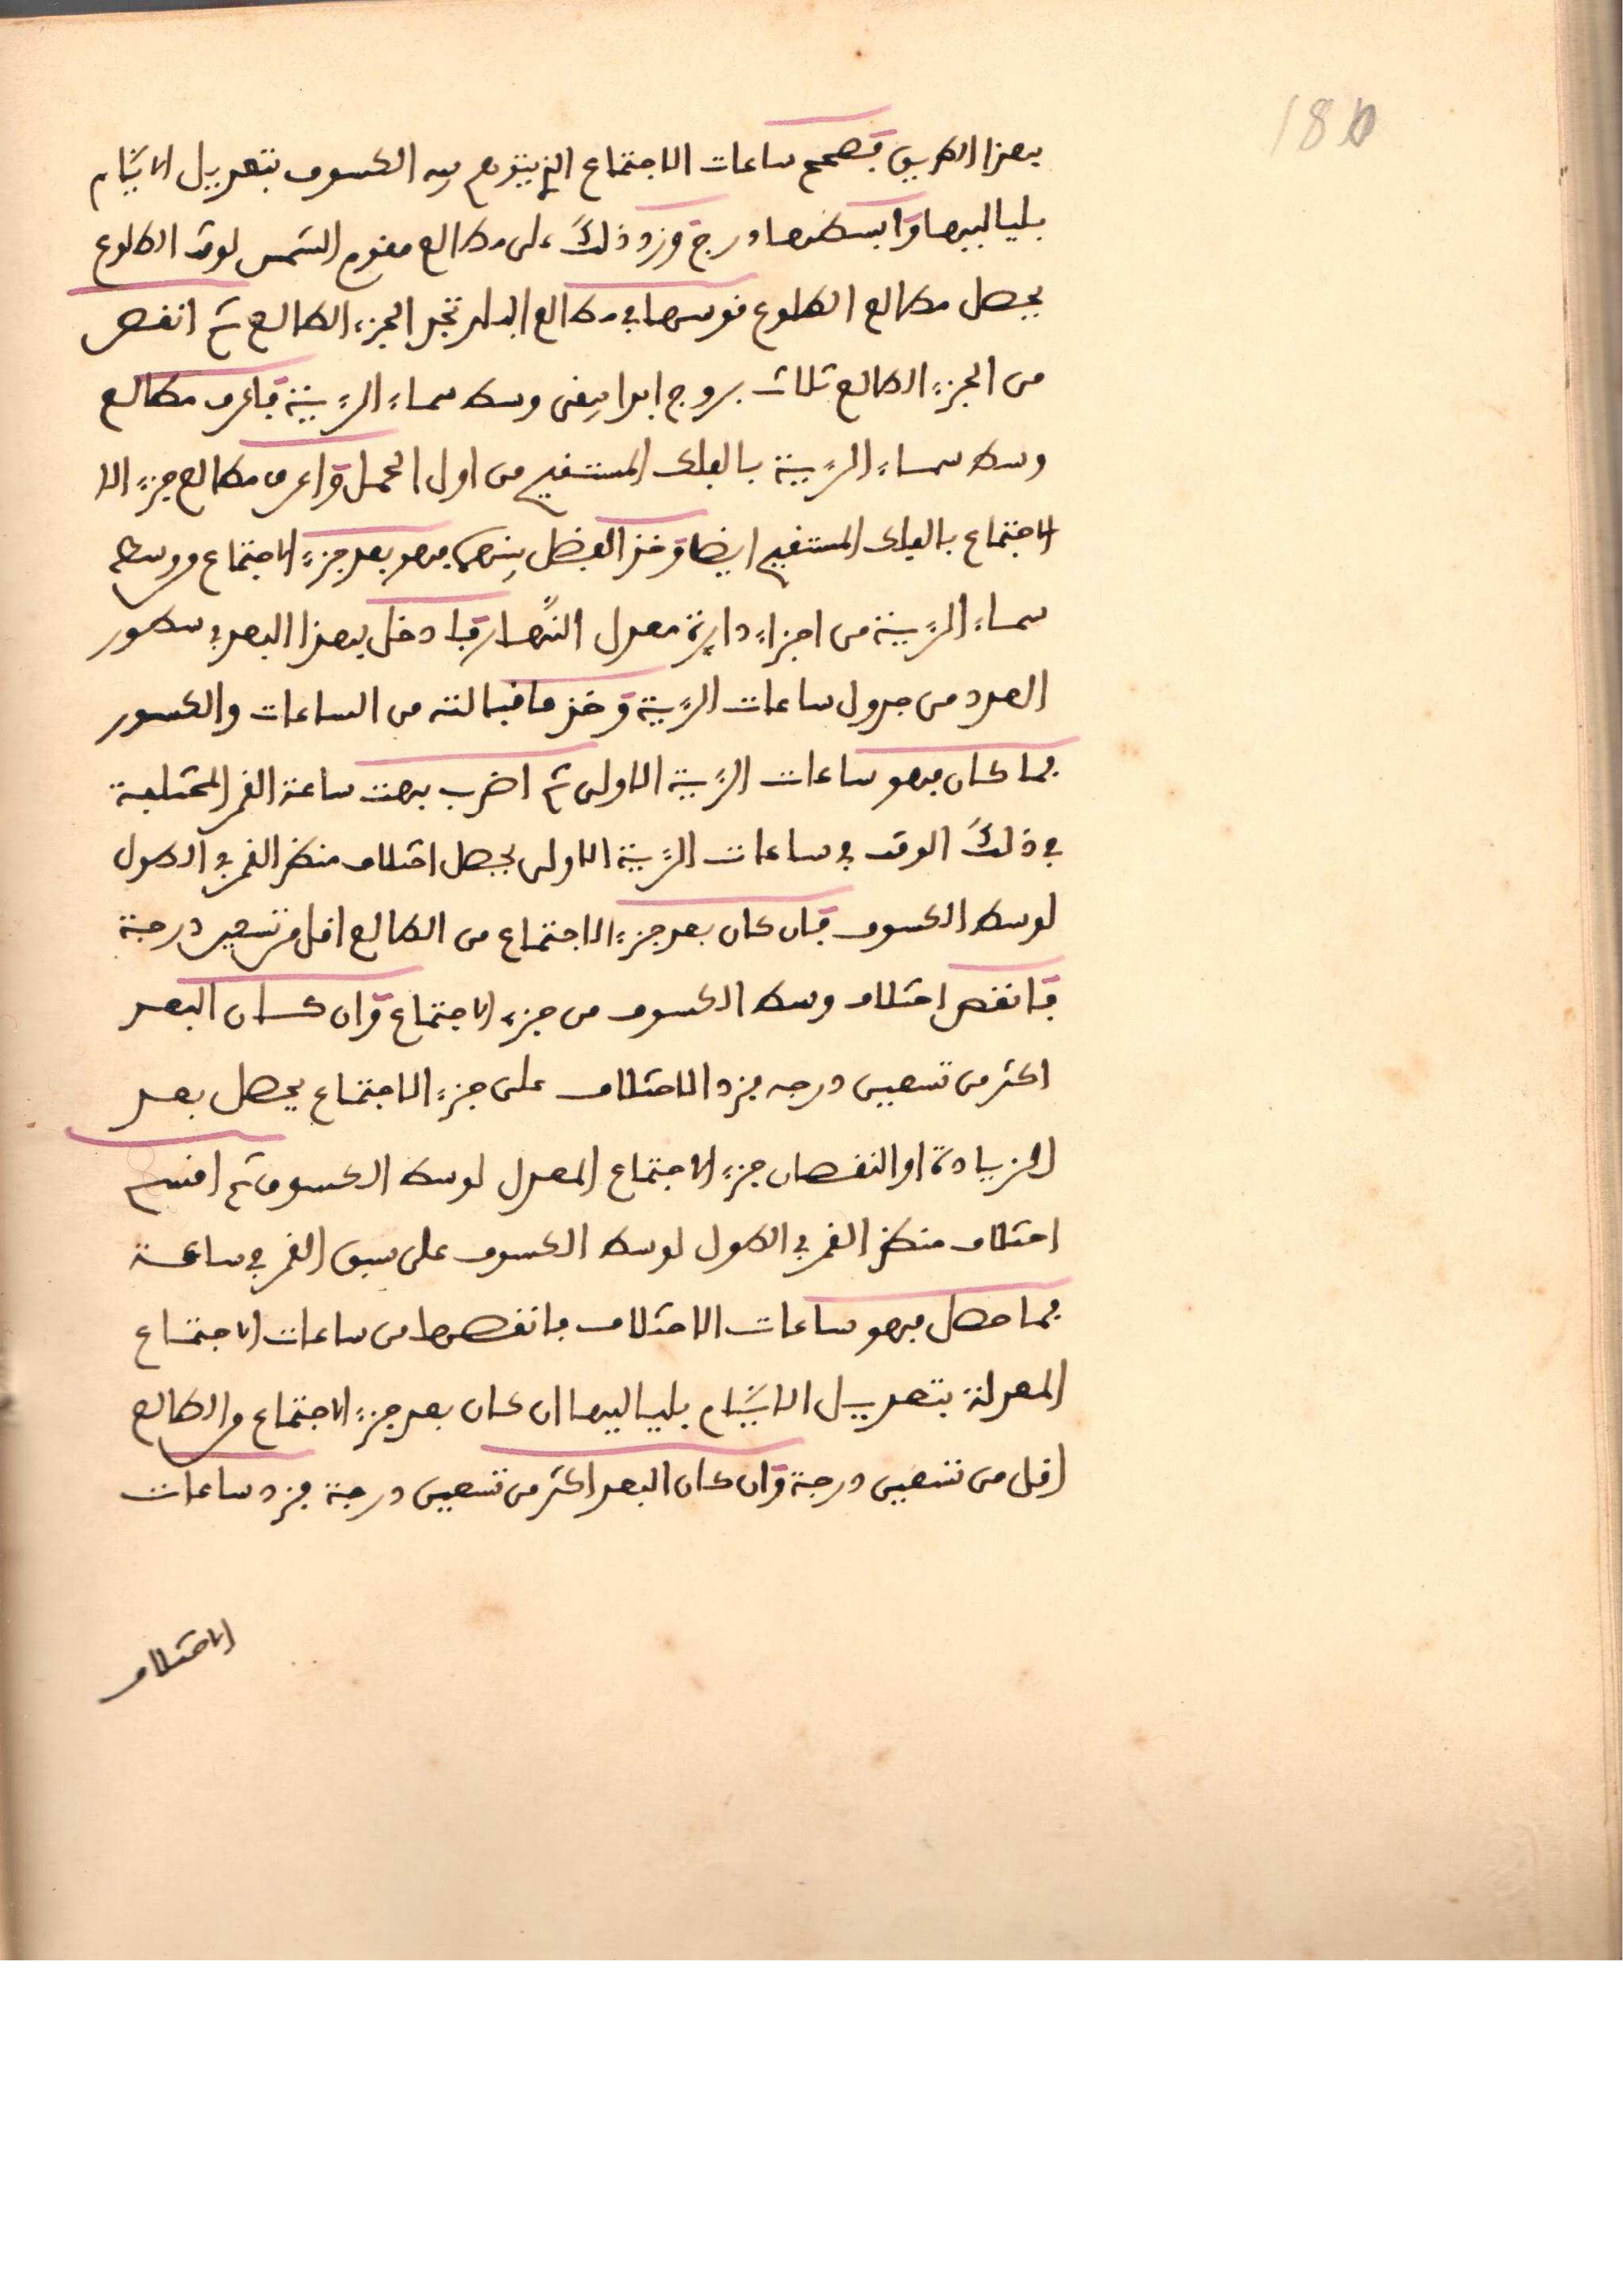 180
بهذا الطريق فصحح ساعات الاجتماع الذي يتوهم فيه الكسوف بتعديل الايّام
بلياليها وابسطها درج وزد ذلك على مطالع مقوم الشمس لوقت الطلوع
يحصل مطالع الطلوع قوسها في مطالع البلد تجد الجزء الطالع ثم انقص
من الجزء الطالع ثلاث بروج ابدا يبقى وسط سماء الرءية فاعرف مطالع
وسط سماء الرءية بالفلك المستقيم من اول الحمل واعرف مطالع جزء الا
الاجتماع بالفلك المستقيم ايضا وخذ الفضل بينهما فهو بعد جزء الاجتماع من وسط
سماء الرءية من اجزاء دايرة معدل النّهار فادخل بهذا البعد في سطور
العدد من جدول ساعات الرءية وخذ ما قبالته من الساعات والكسور
فما كان فهو ساعات الرءية الاولى ثم اضرب بهت ساعة القمر المختلفة
في ذلك الوقت في ساعات الرءية الاولى يحصل اختلاف منظر القمر في الطول
لوسط الكسوف فان كان بعد جزء الاجتماع من الطالع اقل من تسعين درجة
فانقص اختلاف وسط الكسوف من جزء الاجتماع وان كان البعد
اكثر من تسعين درجه فزد الاختلاف على جزء الاجتماع يحصل بعد
الزيادة او النقصان جزء الاجتماع المعدل لوسط الكسوف ثم اقسم
اختلاف منظر القمر في الطول لوسط الكسوف على سبق القمر في ساعة
فما حصل فهو ساعات الاختلاف فانقصها من ساعات الاجتماع
المعدلة بتعديل الايّام بلياليها ان كان بعد جزء الاجتماع من الطالع
اقل من تسعين درجة وان كان البعد اكثر من تسعين درجة فزد ساعات
الاختلاف